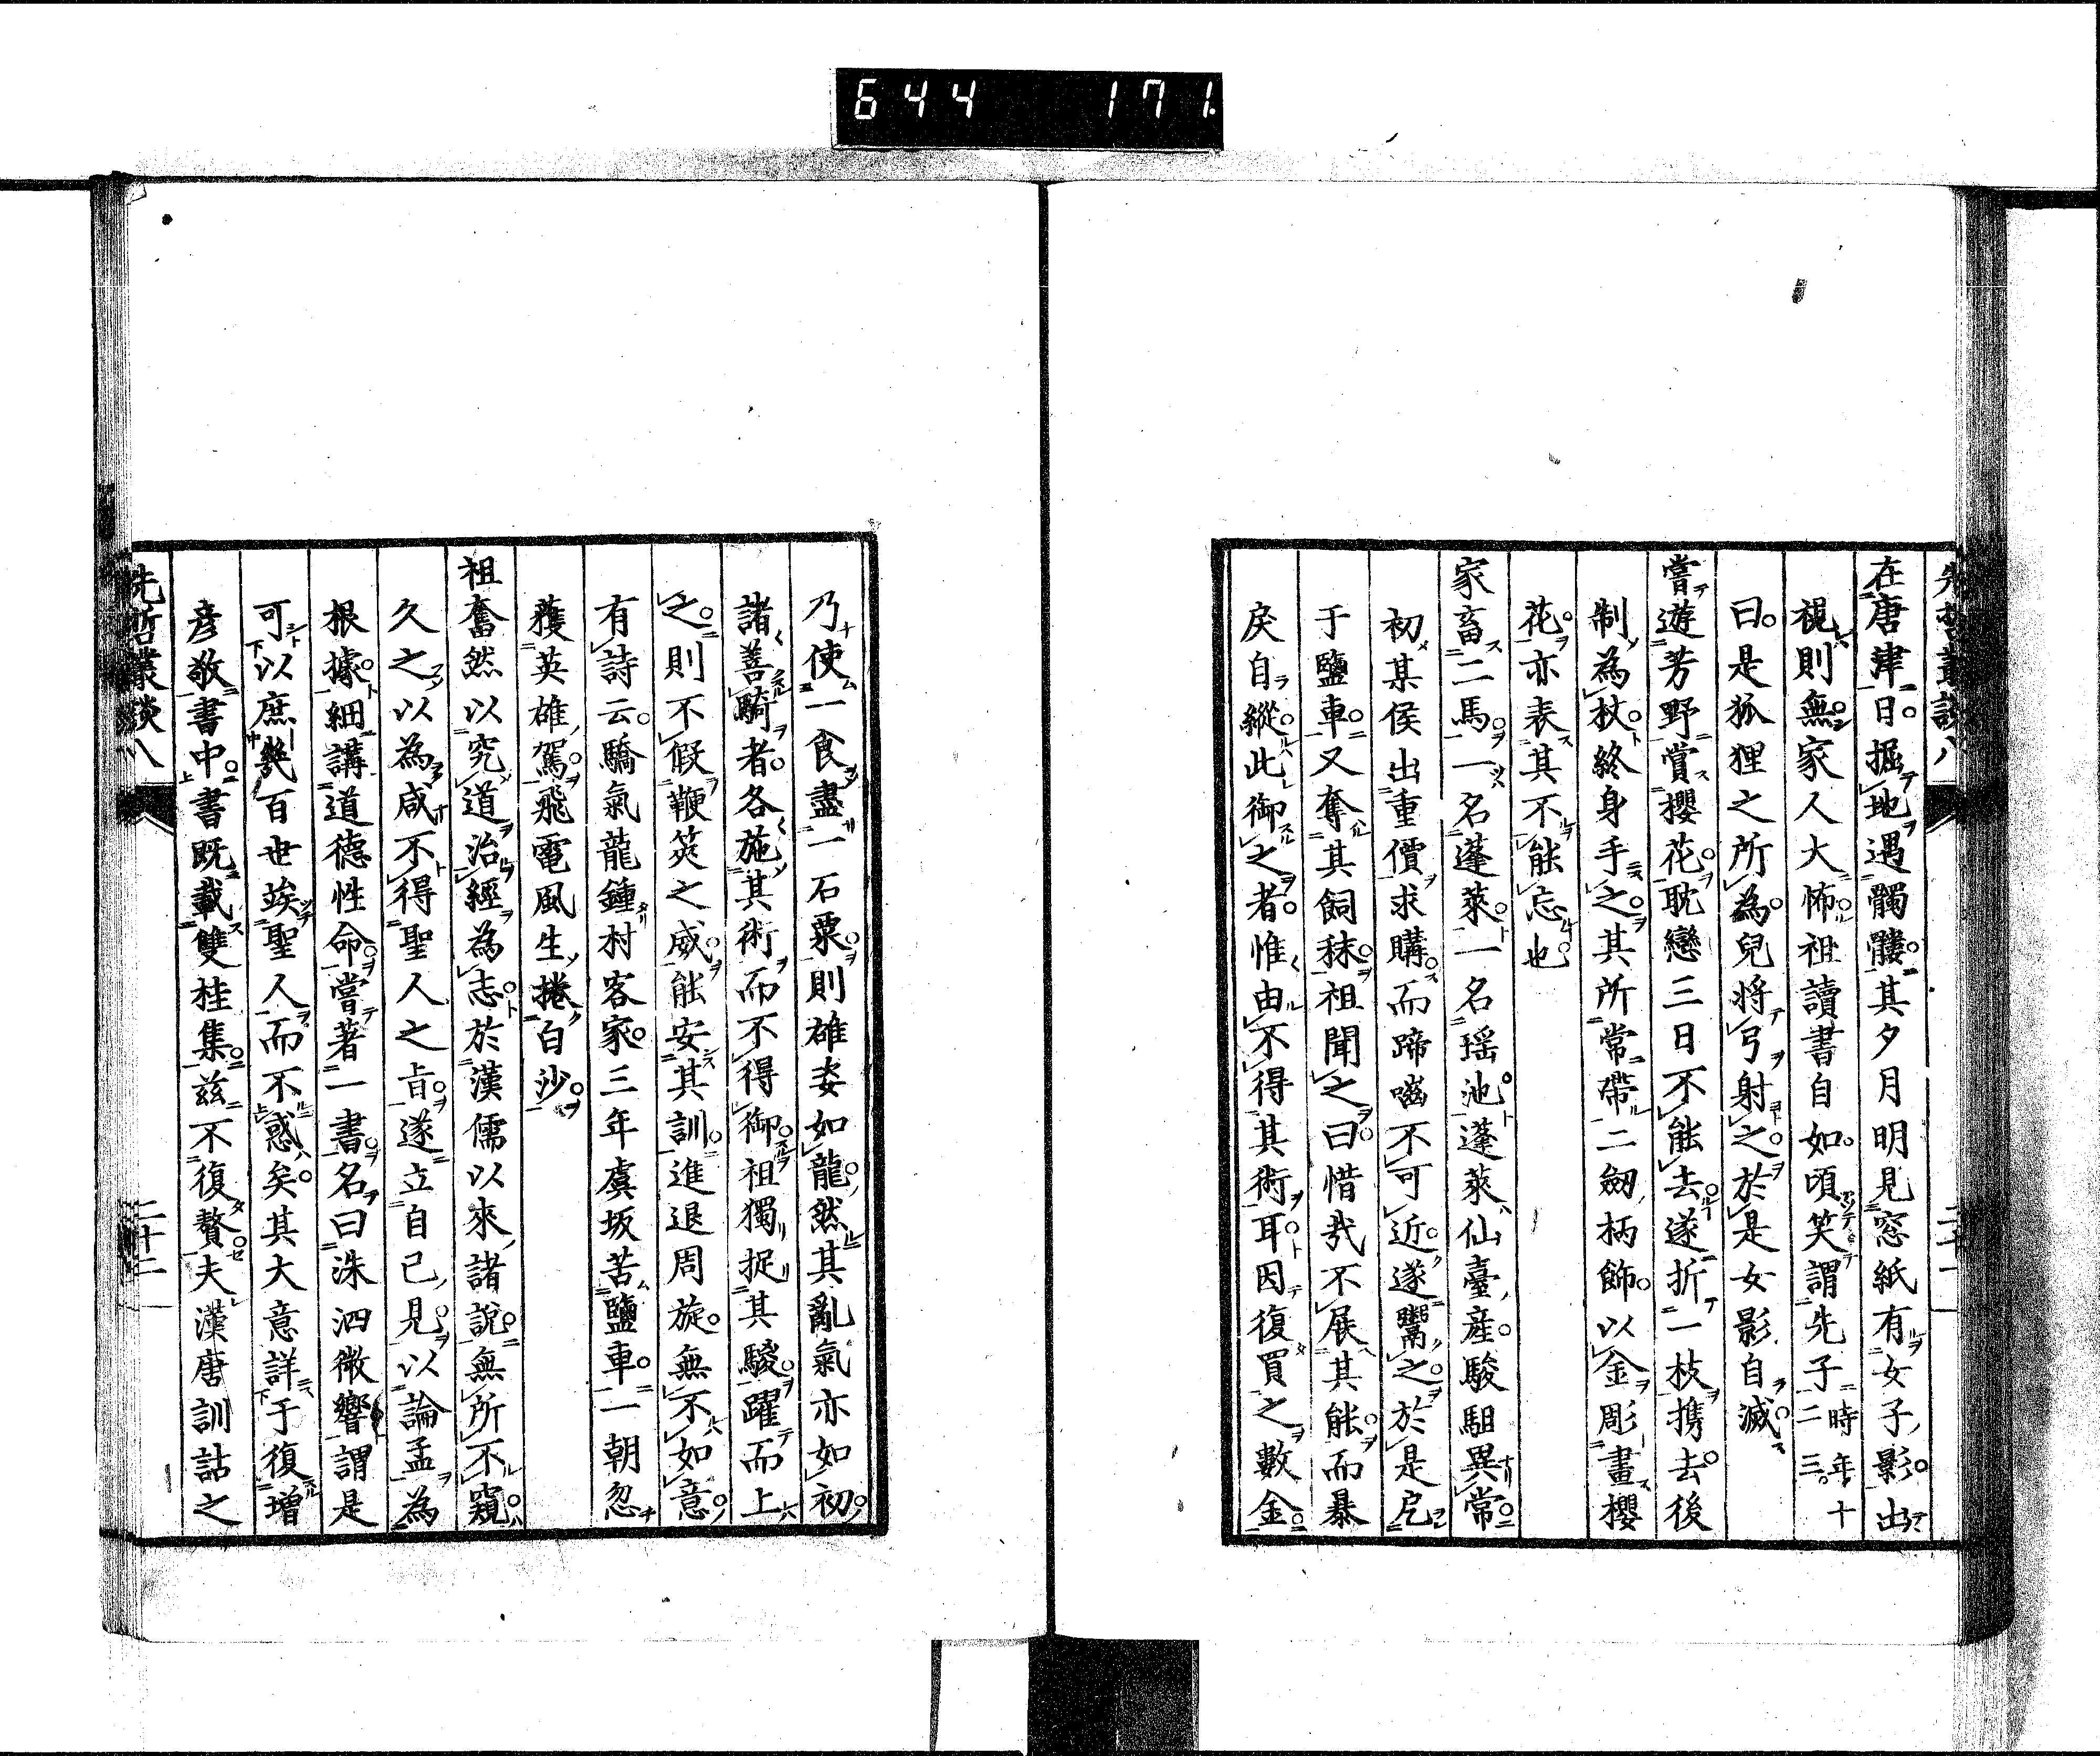 644 171.
先哲叢談八
在唐津日掘地遇髑髏其夕月明見窓紙有女子影出
視則無家人大怖祖讀書自如頃笑謂先子時年十二三
曰是狐狸之所為兒将弓射之於是女影自滅
嘗遊芳野賞櫻花耽戀三日不能去遂折一枝携去後
制為杖終身手之其所常帶二劔柄飾以金彫畫櫻
花亦表其不能忘也
家畜二馬一名蓬萊一名瑶池蓬萊仙臺産駿駔異常
初某侯出重價求購而蹄嚙不可近遂鬻之於是戹
于鹽車又奪其飼秣祖聞之曰惜哉不展其能而暴
戾自縱此御之者惟由不得其術耳因復買之數金
乃使一食盡一石粟則雄姿如龍然其亂氣亦如初
諸善騎者各施其術而不得御祖獨捉其騣躍而上
之則不假鞭筴之威能安其訓進退周旋無不如意
有詩云驕氣龍鍾村客家三年虞坂苦鹽車一朝忽
獲英雄駕飛電風生捲白沙
祖奮然以究道治經為志於漢儒以來諸說無所不窺
久之以為咸不得聖人之旨遂立自己見以論孟為
根據細講道德性命嘗著一書名曰洙泗微響謂是
可以庶幾百世竢聖人而不惑矣其大意詳于復增
彦敬書中書既載雙桂集茲不復贅夫漢唐訓詁之
先哲叢談八
二十二